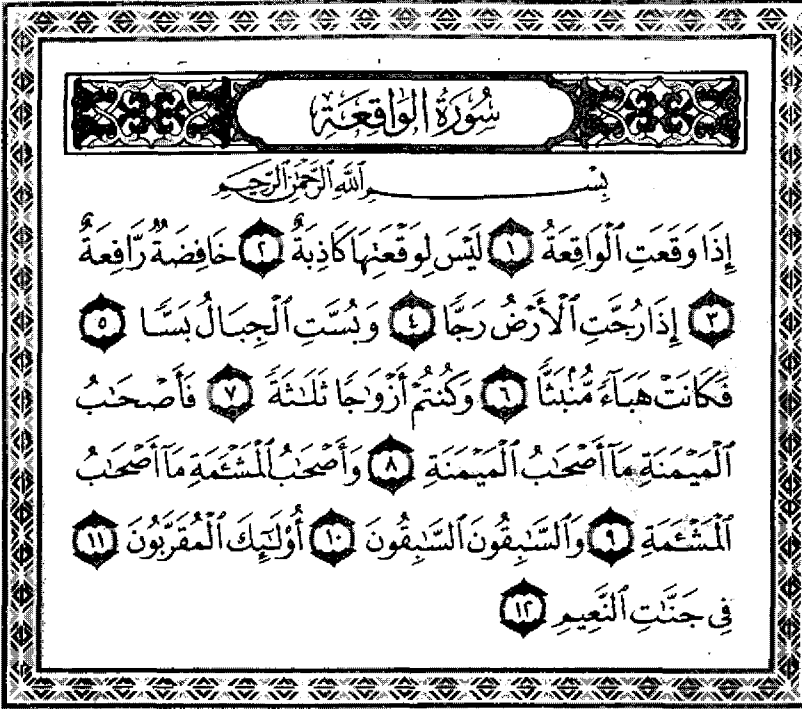 سُورَةُ الوَاقِعَة
بِسْمِ ٱللَّهِ ٱلرَّحْمَٰنِ ٱلرَّحِيمِ
إِذَا وَقَعَتِ ٱلْوَاقِعَةُ ١ لَيْسَ لِوَقْعَتِهَا كَاذِبَةٌ ٢ خَافِضَةٌ رَّافِعَةٌ
٣ إِذَا رُجَّتِ ٱلْأَرْضُ رَجًّا ٤ وَبُسَّتِ ٱلْجِبَالُ بَسًّا ٥
فَكَانَتْ هَبَآءً مُّنۢبَثًّا ٦ وَكُنتُمْ أَزْوَٰجًا ثَلَٰثَةً ٧ فَأَصْحَٰبُ
ٱلْمَيْمَنَةِ مَآ أَصْحَٰبُ ٱلْمَيْمَنَةِ ٨ وَأَصْحَٰبُ ٱلْمَشْـَٔمَةِ مَآ أَصْحَٰبُ
ٱلْمَشْـَٔمَةِ ٩ وَٱلسَّٰبِقُونَ ٱلسَّٰبِقُونَ ١٠ أُو۟لَٰٓئِكَ ٱلْمُقَرَّبُونَ ١١
فِى جَنَّٰتِ ٱلنَّعِيمِ ١٢